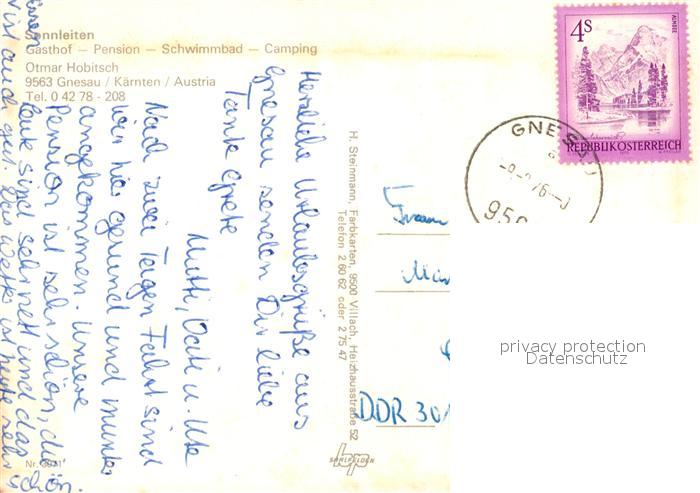 Sonnleiten
Gasthof — Pension — Schwimmbad — Camping
Otmar Hobitsch
9563 Gnesau / Kärnten / Austria
Tel. 0 42 78 - 208
Herzliche Urlaubsgrüße aus
Gnesau senden Dir liebe
Tante Grete
Mutti, Vati u. Ute
Nach zwei Tagen Fahrt sind
wir hier gesund und munter
angekommen. Unsere
Pension ist sehr schön, die
Leute sind sehr nett und das
ist auch gut. Das Wetter ist heute sehr
schön.
H. Steinmann, Farbkarten, 9500 Villach, Heizhausstraße 52
Telefon 2 60 62 oder 2 75 47
4S
ALMSEE
REPUBLIK ÖSTERREICH
GNESAU
Frau
DDR 30
privacy protection
Datenschutz
bp
Nr.